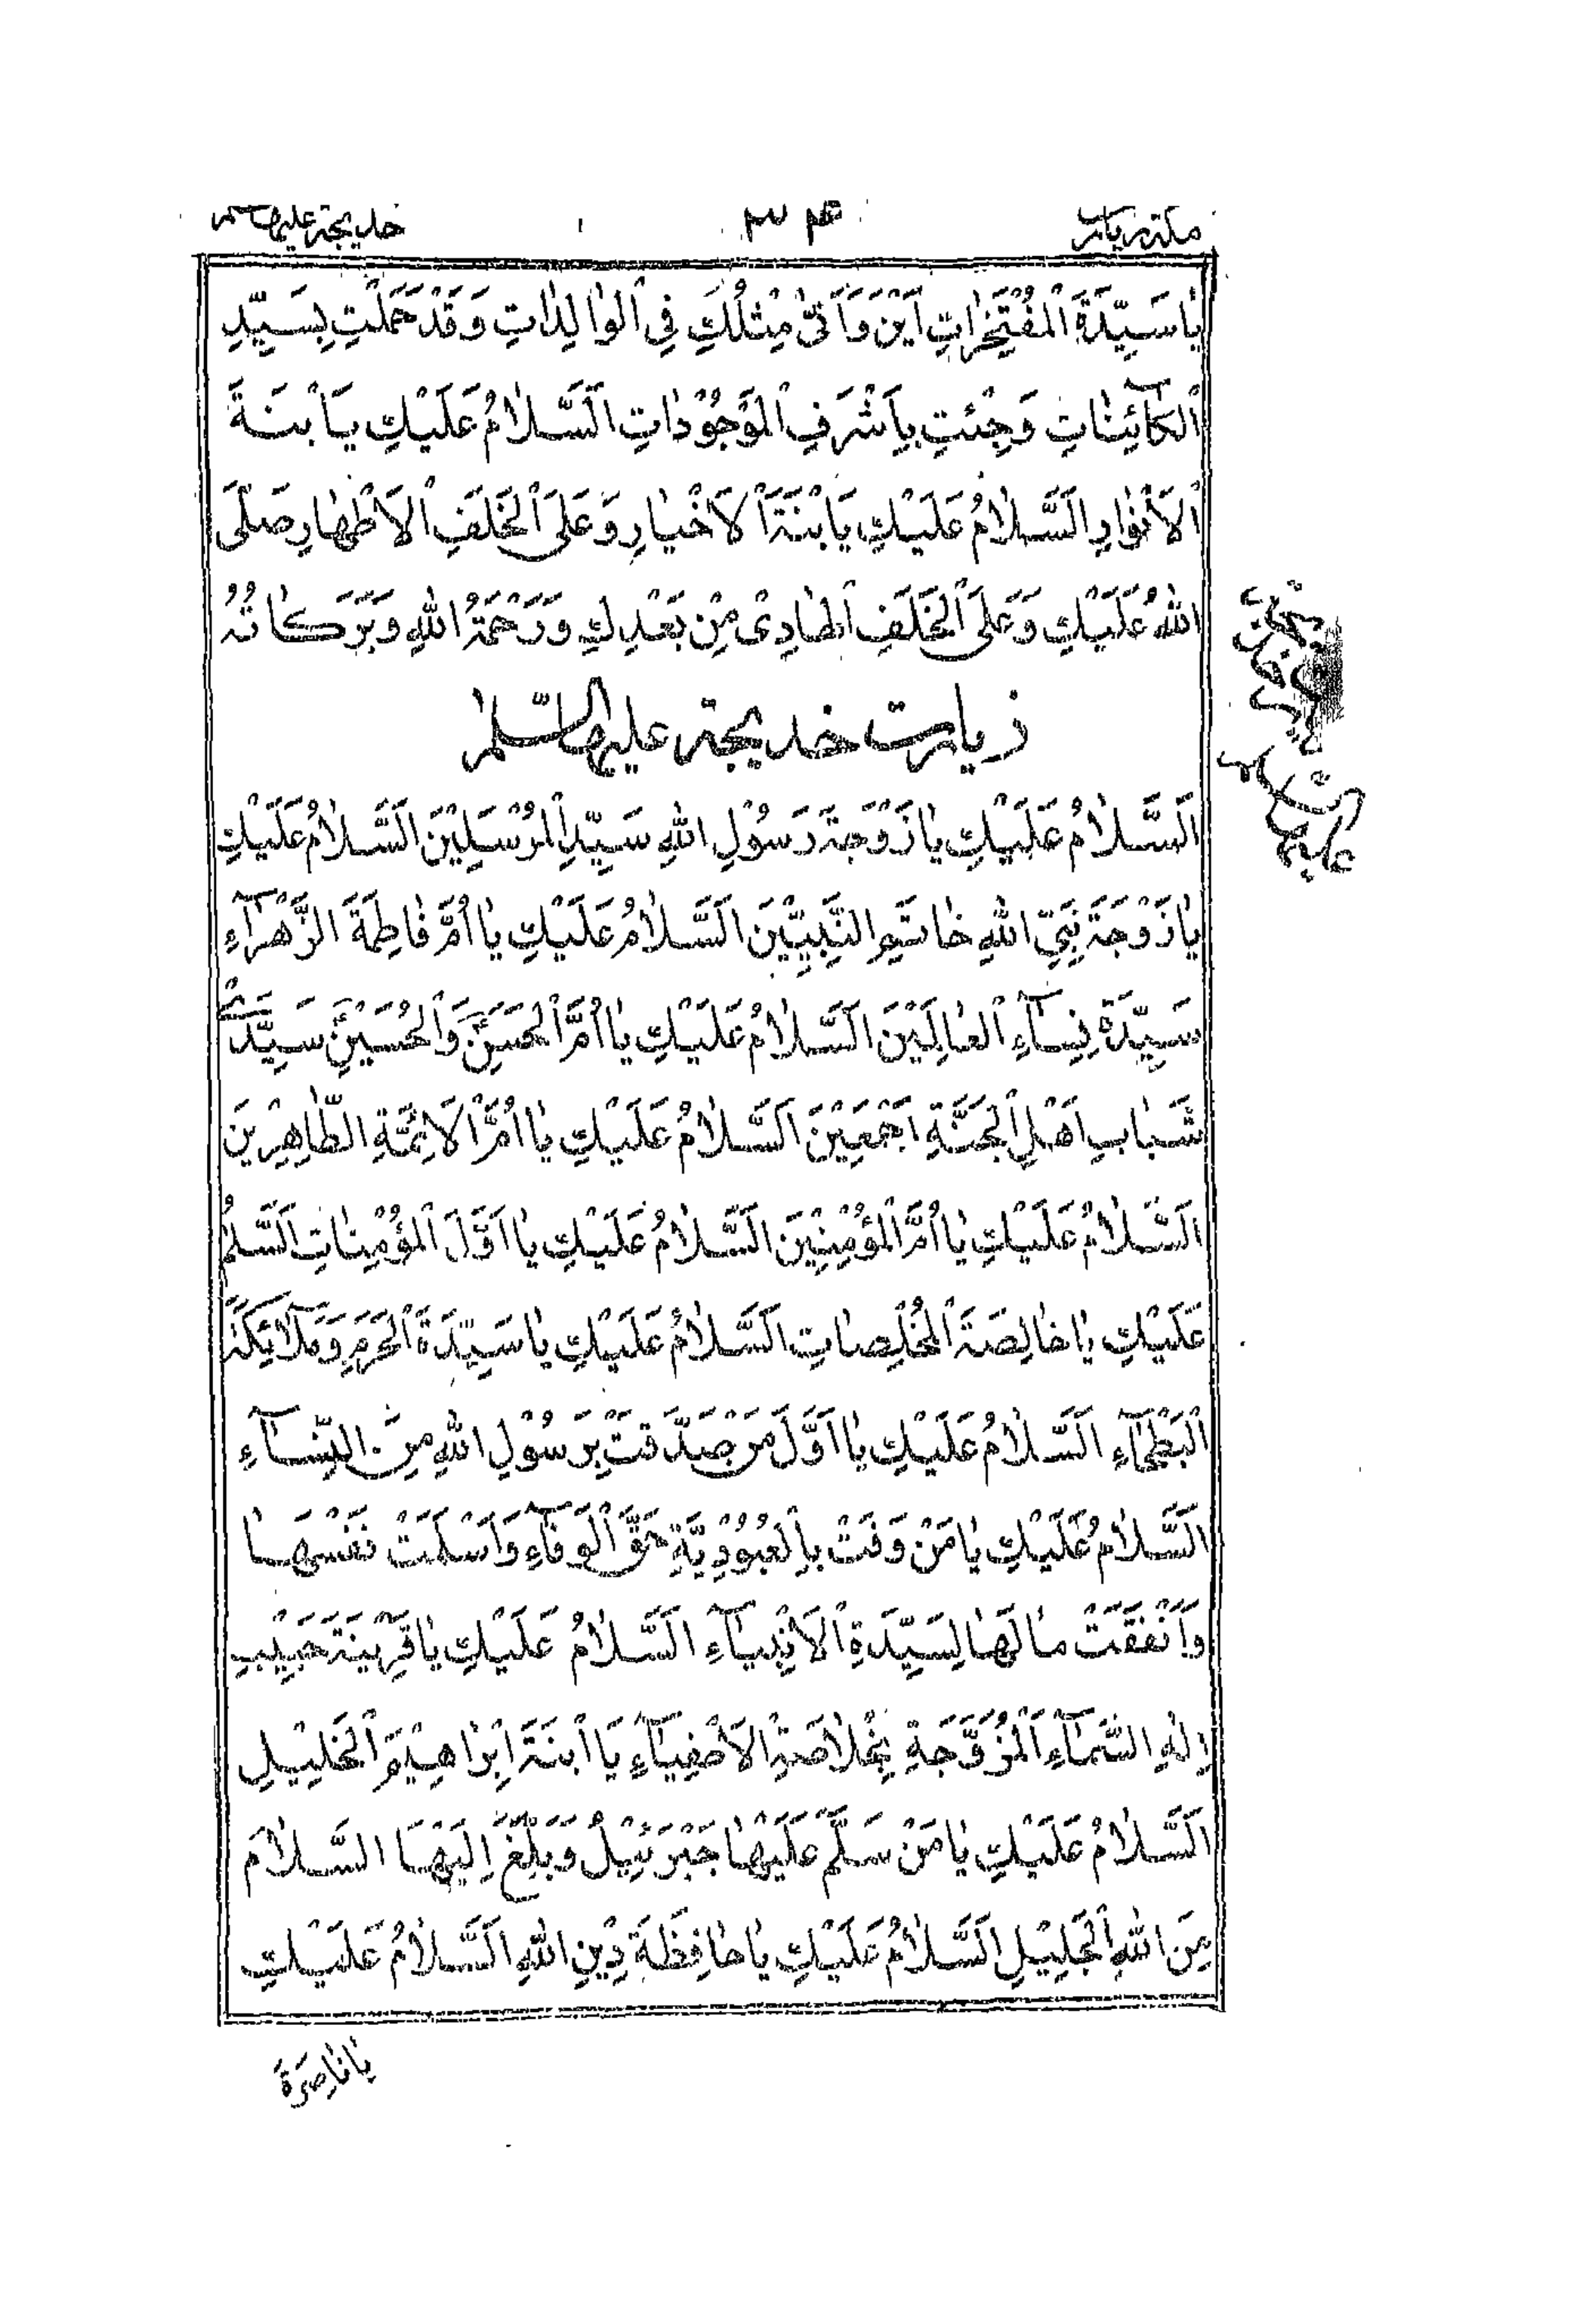 خديجة عليها السلام
۳۴
يٰا سَيِّدَةَ الْمُفْتَخِرٰاتِ اَيْنَ وَاَنّٰى مِثْلُكِ فِي الْوٰالِدٰاتِ وَقَدْ حَمَلْتِ بِسَيِّدِ
الْكٰآئِنٰاتِ وَجِئْتِ بِاَشْرَفِ الْمَوْجُوْدٰاتِ اَلسَّلٰامُ عَلَيْكِ يَابْنَةَ
الْاَنْوٰارِ اَلسَّلٰامُ عَلَيْكِ يَابْنَةَ الْاَخْيٰارِ وَعَلَى الْخَلَفِ الْاَطْهٰارِ صَلَّى
اللهُ عَلَيْكِ وَعَلَى الْخَلَفِ الْهٰادِىْ مِنْ بَعْدِكِ وَرَحْمَةُ اللهِ وَبَرَكٰاتُهُ
زيارت خديجة عليها السّلام
اَلسَّلٰامُ عَلَيْكِ يٰا زَوْجَةَ رَسُوْلِ اللهِ سَيِّدِ الْمُرْسَلِيْنَ اَلسَّلٰامُ عَلَيْكِ
يٰا زَوْجَةَ نَبِيِّ اللهِ خٰاتَمِ النَّبِيِّيْنَ اَلسَّلٰامُ عَلَيْكِ يٰا اُمَّ فٰاطِمَةَ الزَّهْرَآءِ
سَيِّدَةِ نِسَآءِ الْعٰالَمِيْنَ اَلسَّلٰامُ عَلَيْكِ يٰا اُمَّ الْحَسَنِ وَالْحُسَيْنِ سَيِّدَيْ
شَبٰابِ اَهْلِ الْجَنَّةِ اَجْمَعِيْنَ اَلسَّلٰامُ عَلَيْكِ يٰا اُمَّ الْاَئِمَّةِ الطّٰاهِرِيْنَ
اَلسَّلٰامُ عَلَيْكِ يٰا اُمَّ الْمُؤْمِنِيْنَ اَلسَّلٰامُ عَلَيْكِ يٰا اَوَّلَ الْمُؤْمِنٰاتِ اَلسَّلٰمُ
عَلَيْكِ يٰا خٰالِصَةَ الْمُخْلِصٰاتِ اَلسَّلٰامُ عَلَيْكِ يٰا سَيِّدَةَ الْحَرَمِ وَمَلَآئِكَةَ
الْبَطْحَآءِ اَلسَّلٰامُ عَلَيْكِ يٰا اَوَّلَ مَنْ صَدَّقَتْ بِرَسُوْلِ اللهِ مِنَ النِّسَآءِ
اَلسَّلٰامُ عَلَيْكِ يٰا مَنْ وَفَتْ بِالْعُبُوْدِيَّةِ حَقَّ الْوَفَآءِ وَاَسْلَمَتْ نَفْسَهَا
وَاَنْفَقَتْ مٰالَهٰا لِسَيِّدَةِ الْاَنْبِيَآءِ اَلسَّلٰامُ عَلَيْكِ يٰا قَرِيْنَةَ حَبِيْبِ
اِلٰهِ السَّمَآءِ الْمُزَوَّجَةِ بِخُلٰاصَةِ الْاَصْفِيَآءِ يَا ابْنَةَ اِبْرٰاهِيْمَ الْخَلِيْلِ
اَلسَّلٰامُ عَلَيْكِ يٰا مَنْ سَلَّمَ عَلَيْهٰا جَبْرَئِيْلُ وَبَلَّغَ اِلَيْهَا السَّلٰامَ
مِنَ اللهِ الْجَلِيْلِ اَلسَّلٰامُ عَلَيْكِ يٰا حٰافِظَةَ دِيْنِ اللهِ اَلسَّلٰامُ عَلَيْكِ
يٰا نٰاصِرَةَ